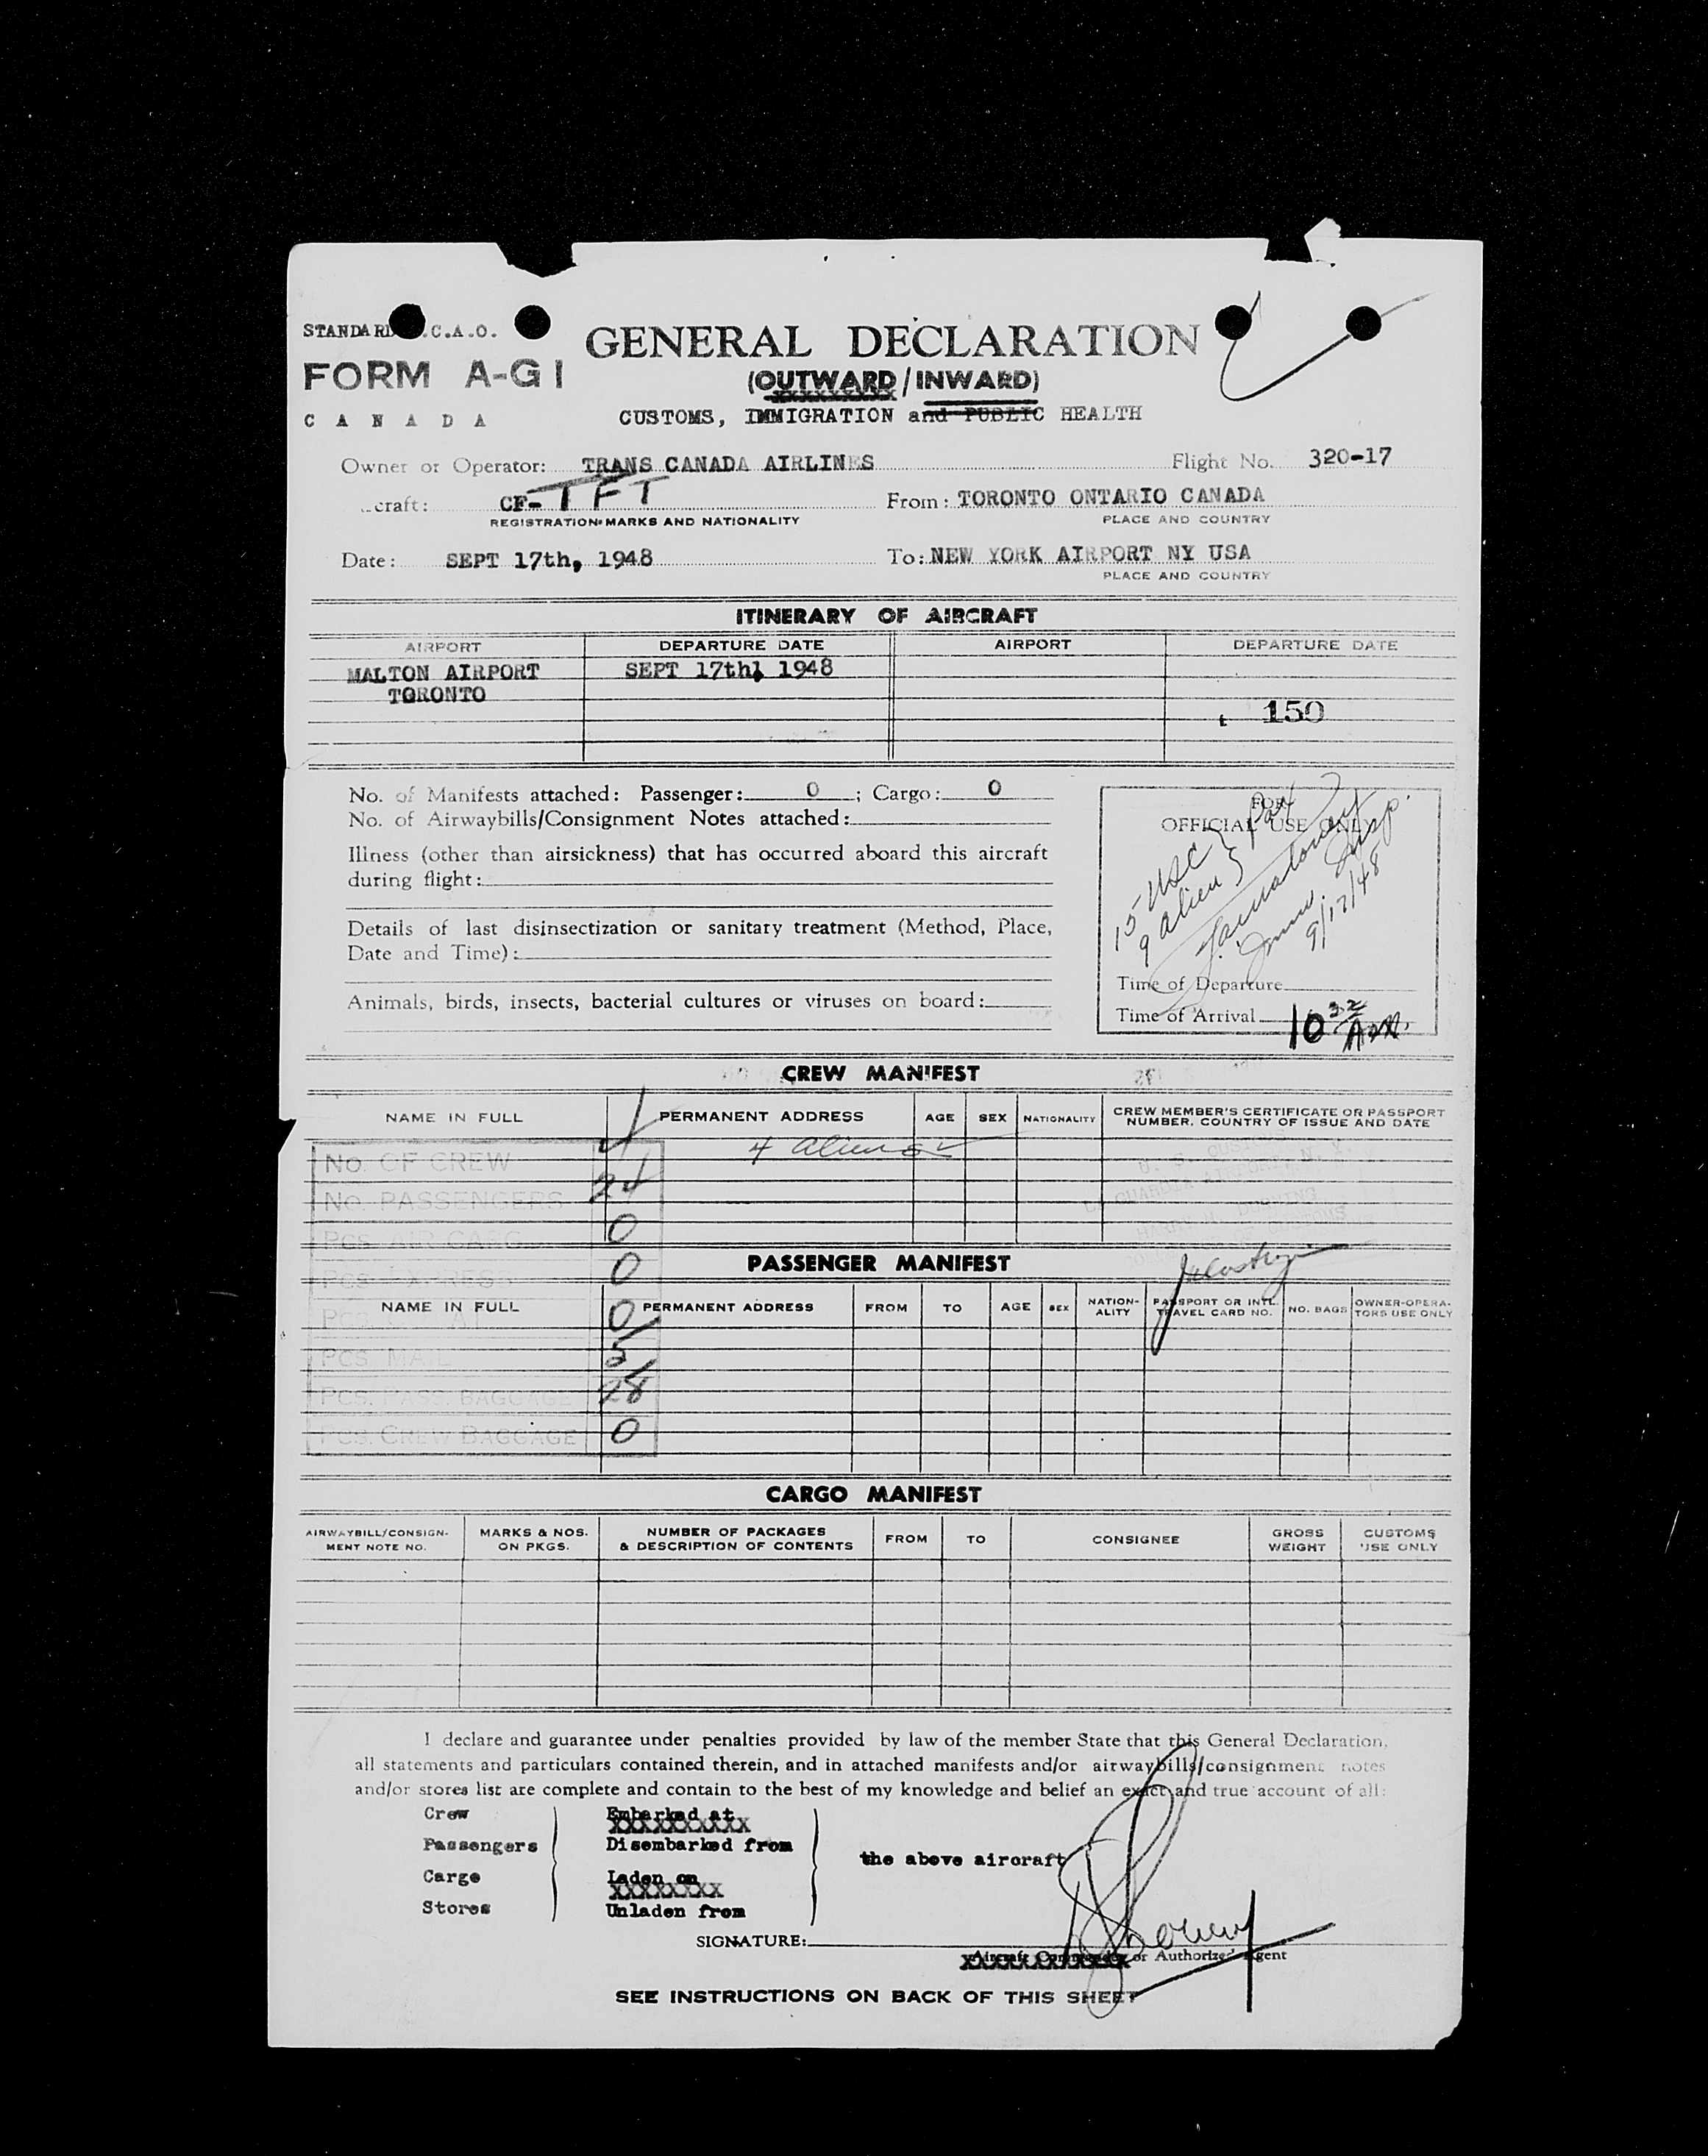 STANDARD I.C.A.O.
FORM A-G1
CANADA
GENERAL DECLARATION
(OUTWARD/INWARD)
CUSTOMS, IMMIGRATION and PUBLIC HEALTH
Owner or Operator: TRANS CANADA AIRLINES Flight No. 320-17
craft: CF-TFT From: TORONTO ONTARIO CANADA
REGISTRATION MARKS AND NATIONALITY PLACE AND COUNTRY
Date: SEPT 17th, 1948 To: NEW YORK AIRPORT NY USA
PLACE AND COUNTRY
ITINERARY OF AIRCRAFT
AIRPORT DEPARTURE DATE AIRPORT DEPARTURE DATE
MALTON AIRPORT SEPT 17th, 1948
TORONTO
150
No. of Manifests attached: Passenger: 0 ; Cargo: 0
No. of Airwaybills/Consignment Notes attached:
Illness (other than airsickness) that has occurred aboard this aircraft
during flight:
Details of last disinsectization or sanitary treatment (Method, Place,
Date and Time):
Animals, birds, insects, bacterial cultures or viruses on board:
FOR
OFFICIAL USE ONLY
15 USC } Pax
9 alien
Insp.
9/17/48
Time of Departure
Time of Arrival 10 32 A.M.
CREW MANIFEST
NAME IN FULL PERMANENT ADDRESS AGE SEX NATIONALITY CREW MEMBER'S CERTIFICATE OR PASSPORT
NUMBER, COUNTRY OF ISSUE AND DATE
4 aliens
No. OF CREW 4
No. PASSENGERS 24
PCS. AIR CARGO 0
PCS. EXPRESS 0
U. S. CUSTOMS
LA GUARDIA AIRPORT, N. Y.
HARRY M. DURNING
PASSENGER MANIFEST
NAME IN FULL PERMANENT ADDRESS FROM TO AGE SEX NATION-
ALITY PASSPORT OR INTL.
TRAVEL CARD NO. NO. BAGS OWNER-OPERA-
TORS USE ONLY
0
PCS. MAIL 5
PCS. PASS. BAGGAGE 28
PCS. CREW BAGGAGE 0
CARGO MANIFEST
AIRWAYBILL/CONSIGN-
MENT NOTE NO. MARKS & NOS.
ON PKGS. NUMBER OF PACKAGES
& DESCRIPTION OF CONTENTS FROM TO CONSIGNEE GROSS
WEIGHT CUSTOMS
USE ONLY
I declare and guarantee under penalties provided by law of the member State that this General Declaration,
all statements and particulars contained therein, and in attached manifests and/or airwaybills/consignment notes
and/or stores list are complete and contain to the best of my knowledge and belief an exact and true account of all:
Crew Embarked at
Passengers Disembarked from
the above aircraft
Cargo Laden on
Stores Unladen from
SIGNATURE:
Aircraft Commander or Authorized Agent
SEE INSTRUCTIONS ON BACK OF THIS SHEET